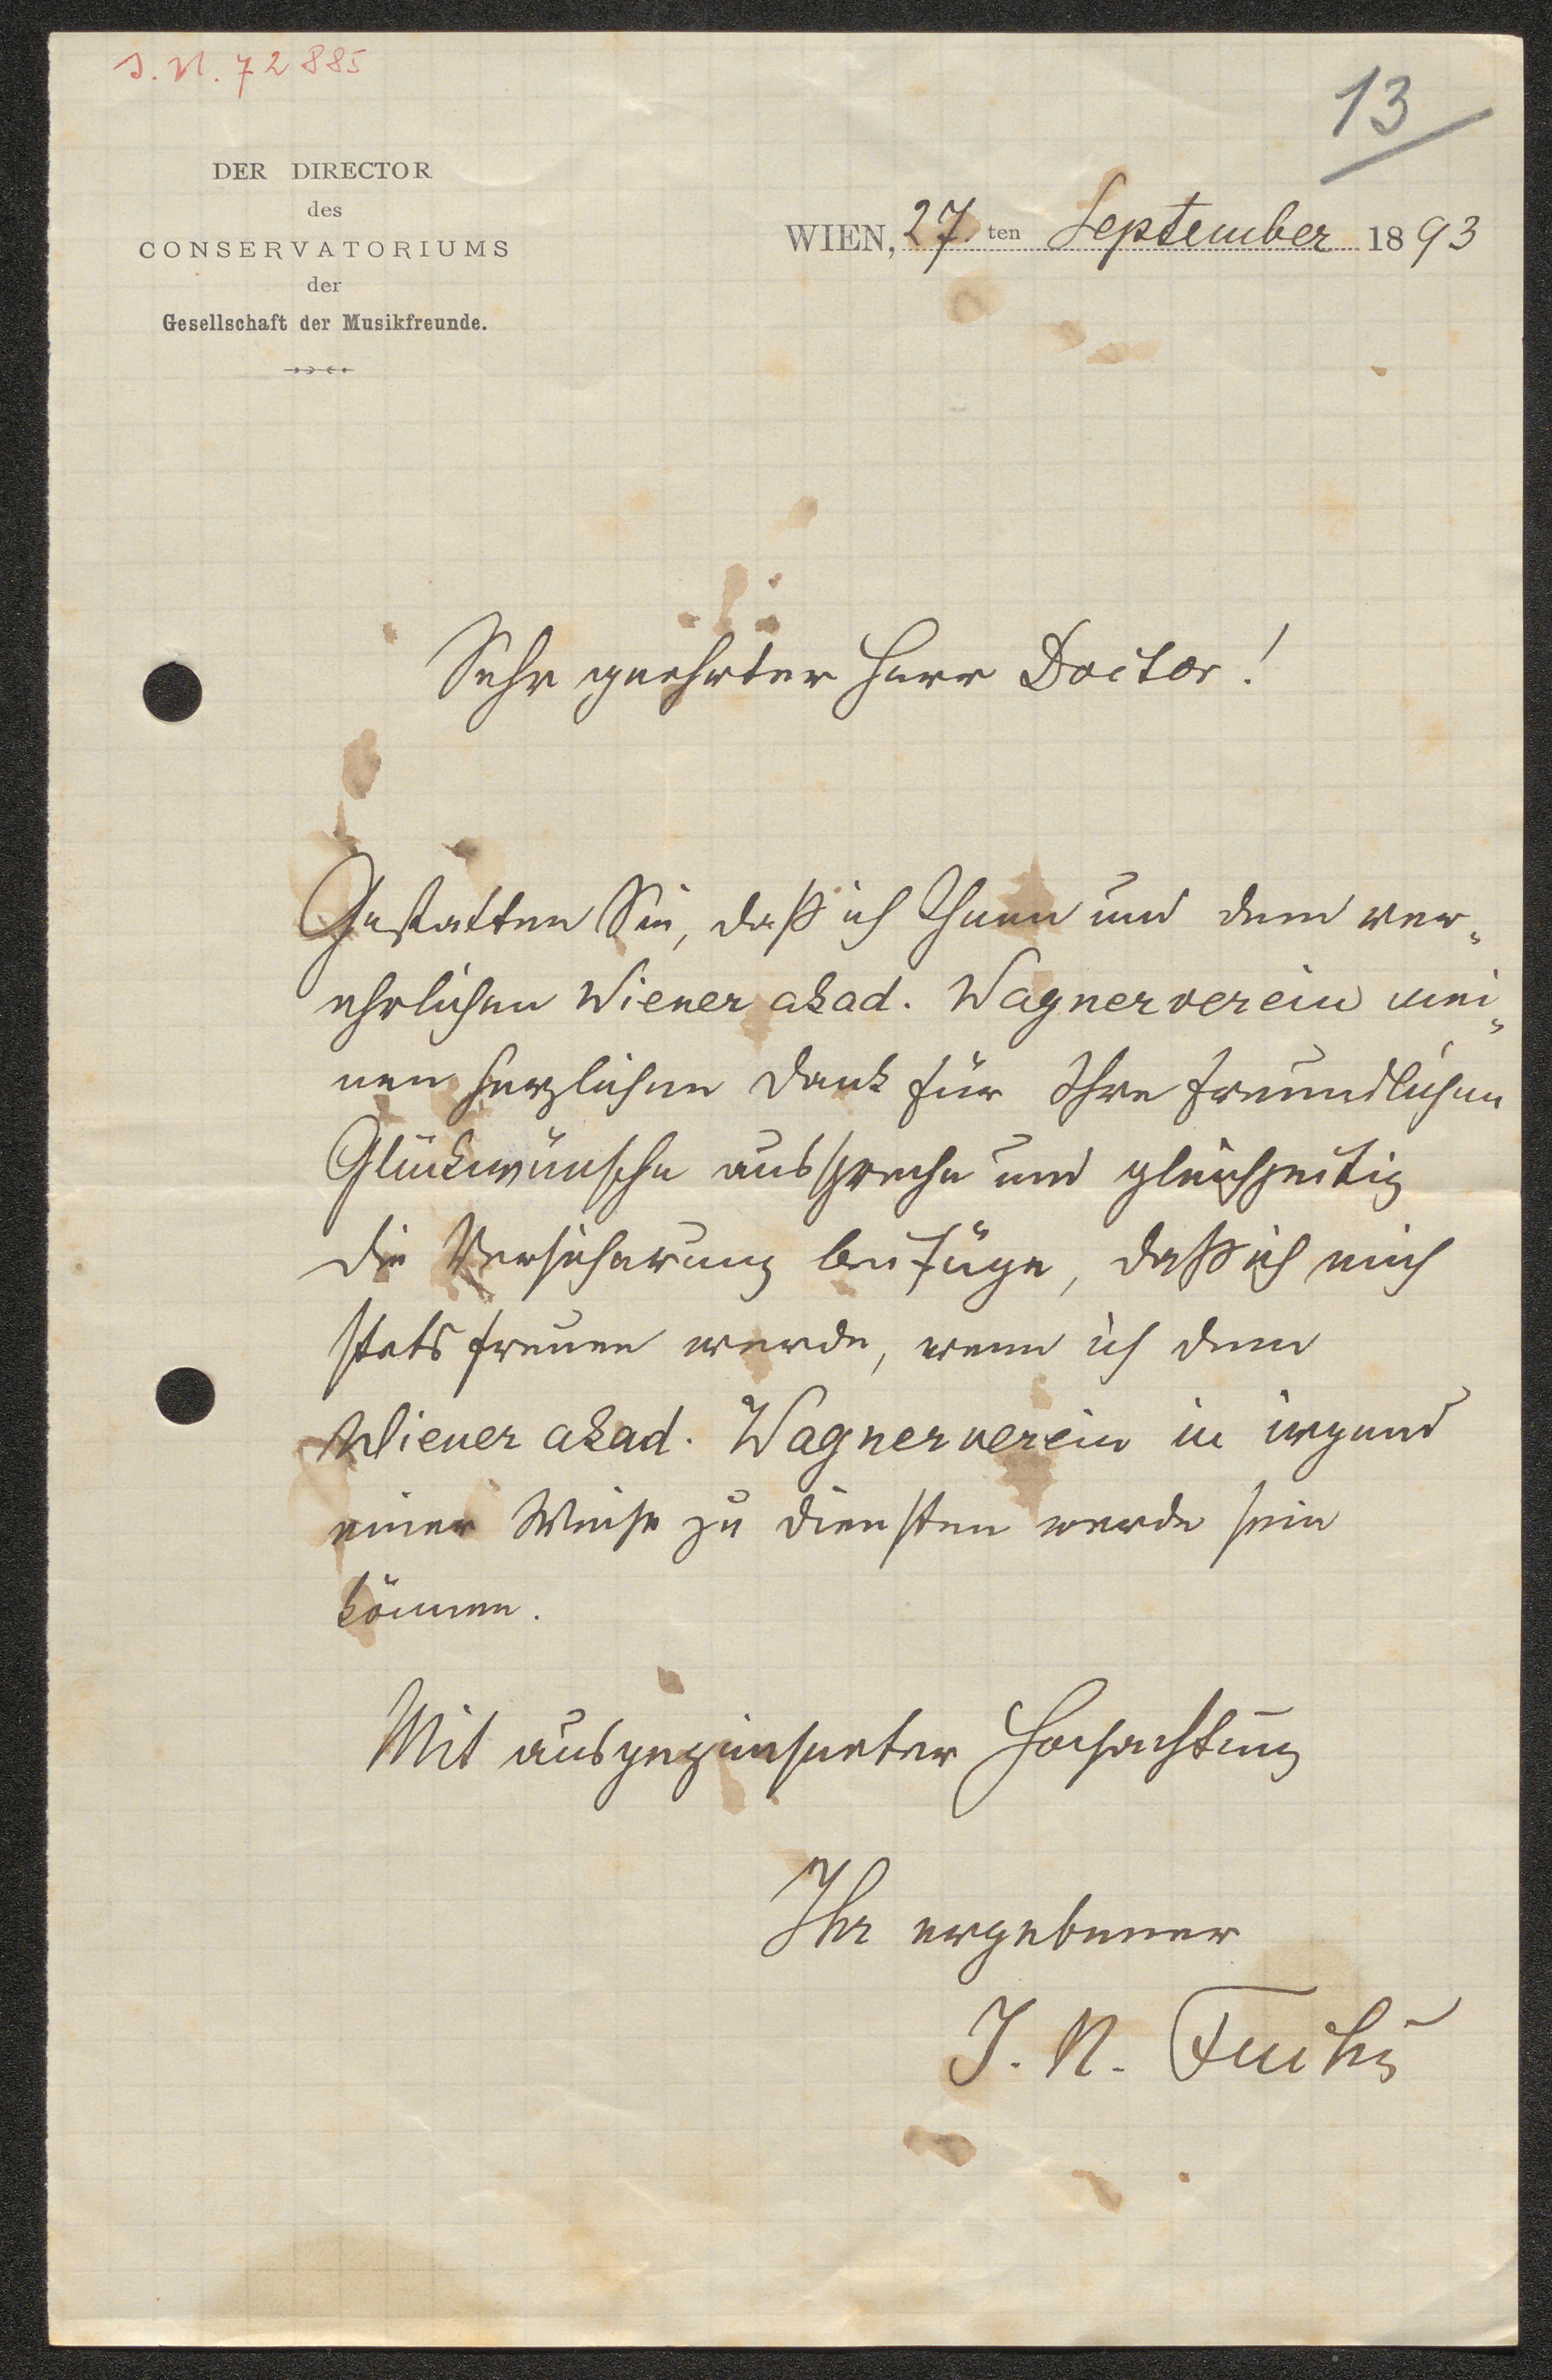 I. N. 72885
13
DER DIRECTOR
des
CONSERVATORIUMS
der
Gesellschaft der Musikfreunde.
WIEN, 27. ten September 1893
Sehr geehrter Herr Doctor!
Gestatten Sie, daß ich Ihnen und dem ver-
ehrlichen Wiener akad. Wagnerverein mei-
nen herzlichen Dank für Ihre freundlichen
Glückwünsche ausspreche und gleichzeitig
die Versicherung beifüge, daß ich mich
stets freuen werde, wenn ich dem
Wiener akad. Wagnerverein in irgend
einer Weise zu diensten werde sein
können.
Mit ausgezeichneter Hochachtung
Ihr ergebener
J. N. Fuchs